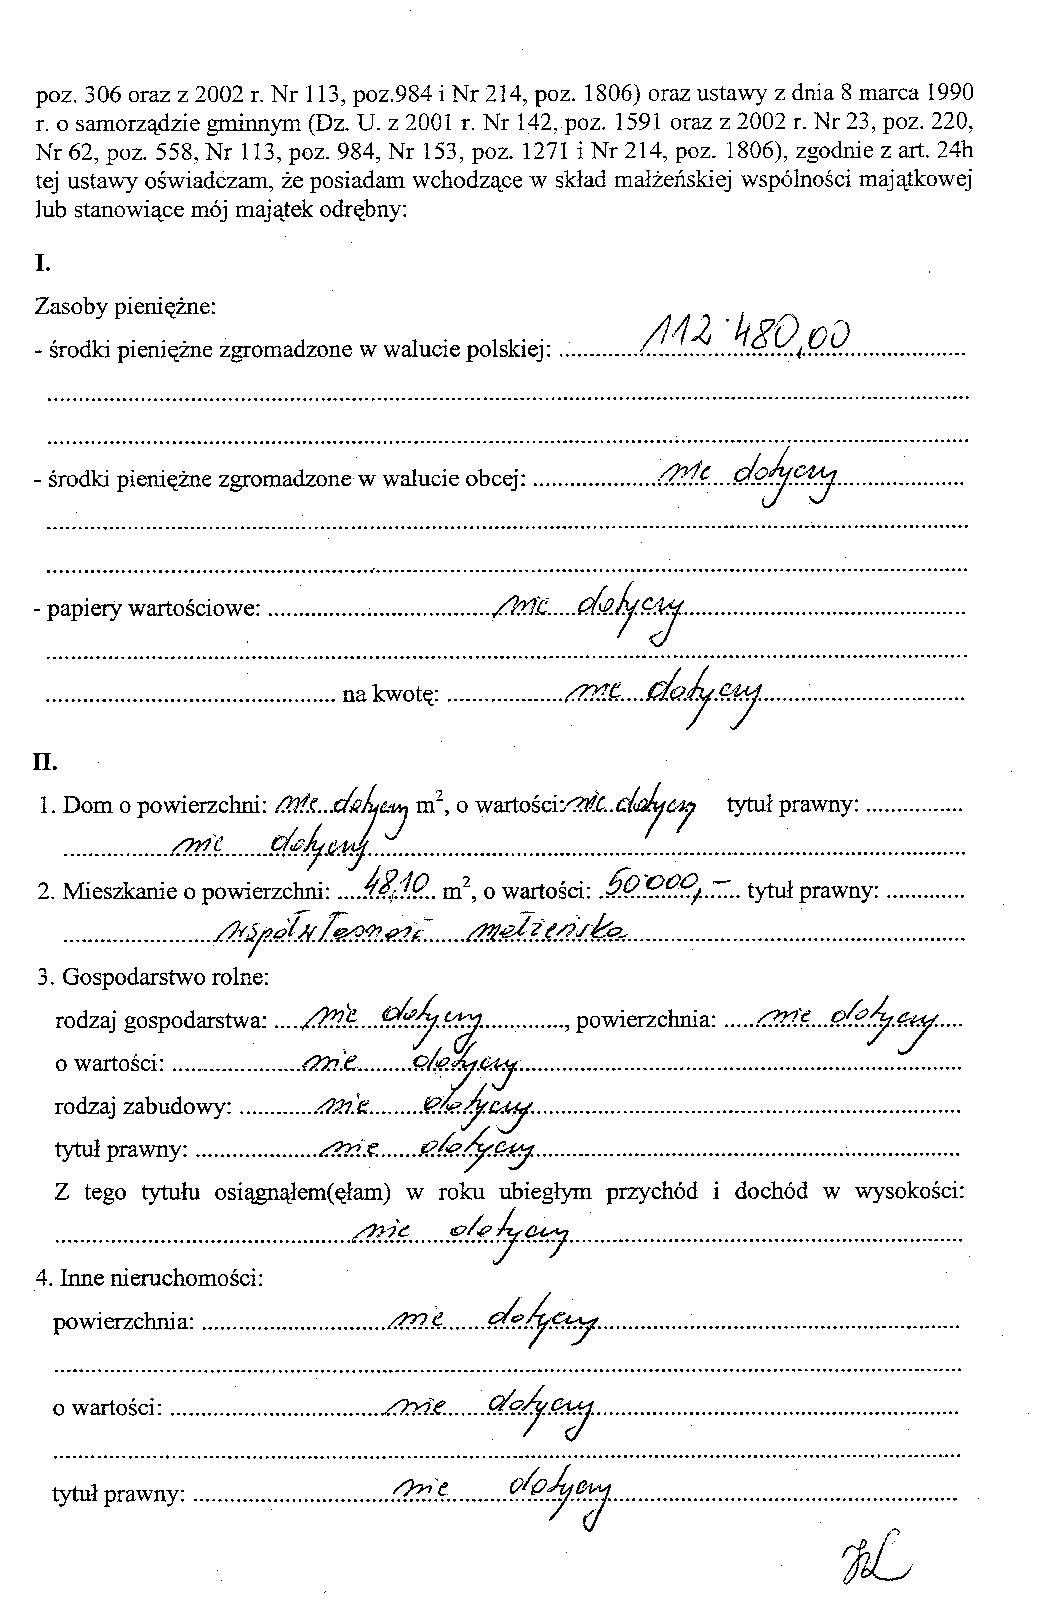 poz. 306 oraz z 2002 r. Nr 113, poz.984 i Nr 214, poz. 1806) oraz ustawy z dnia 8 marca 1990
r. o samorządzie gminnym (Dz. U. z 2001 r. Nr 142, poz. 1591 oraz z 2002 r. Nr 23, poz. 220,
Nr 62, poz. 558, Nr 113, poz. 984, Nr 153, poz. 1271 i Nr 214, poz. 1806), zgodnie z art. 24h
tej ustawy oświadczam, że posiadam wchodzące w skład małżeńskiej wspólności majątkowej
lub stanowiące mój majątek odrębny:
I.
Zasoby pieniężne:
- środki pieniężne zgromadzone w walucie polskiej: 112.480,00
- środki pieniężne zgromadzone w walucie obcej: nie dotyczy
- papiery wartościowe: nie dotyczy
na kwotę: nie dotyczy
II.
1. Dom o powierzchni: nie dotyczy m², o wartości: nie dotyczy tytuł prawny:
nie dotyczy
2. Mieszkanie o powierzchni: 48,10 m², o wartości: 50.000,- tytuł prawny:
współwłasność małżeńska
3. Gospodarstwo rolne:
rodzaj gospodarstwa: nie dotyczy, powierzchnia: nie dotyczy
o wartości: nie dotyczy
rodzaj zabudowy: nie dotyczy
tytuł prawny: nie dotyczy
Z tego tytułu osiągnąłem(ęłam) w roku ubiegłym przychód i dochód w wysokości:
nie dotyczy
4. Inne nieruchomości:
powierzchnia: nie dotyczy
o wartości: nie dotyczy
tytuł prawny: nie dotyczy